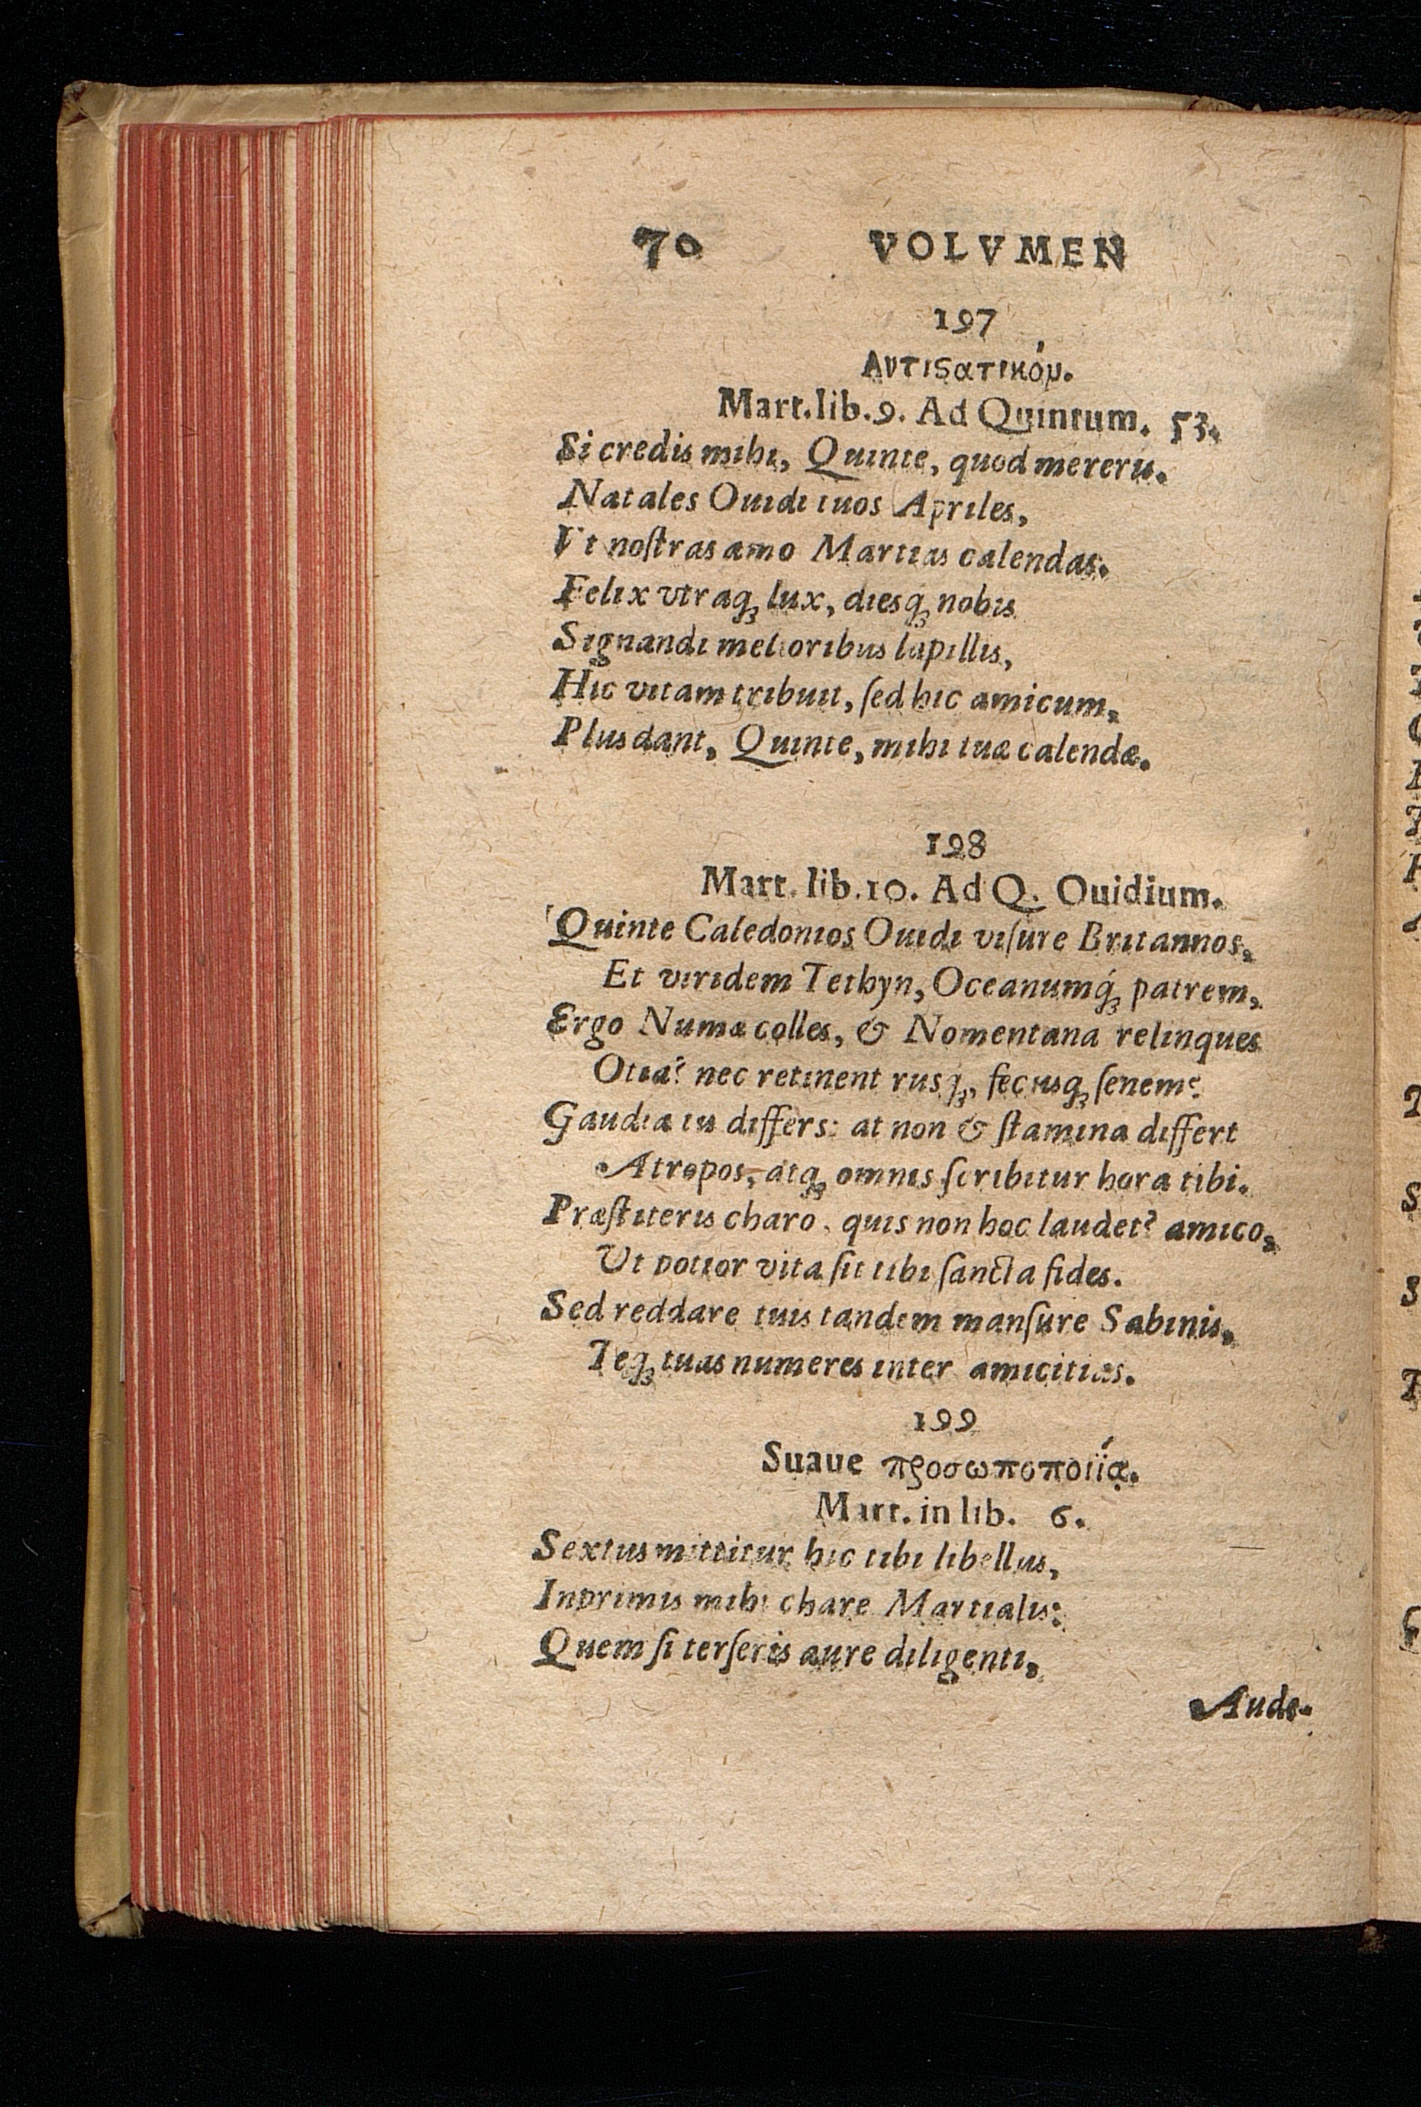 70 VOLVMEN
197
Αντιςατικόν.
Mart. lib. 9. Ad Quintum. 53.
Si credis mihi, Quinte, quod mereris.
Natales Ouidi tuos Apriles,
Vt noſtras amo Martias calendas.
Felix vtraq́; lux, diesq́; nobis
Signandi melioribus lapillis,
Hic vitam tribuit, ſed hic amicum,
Plus dant, Quinte, mihi tuæ calendæ.
198
Mart. lib. 10. Ad Q. Ouidium.
Quinte Caledonios Ouidi viſure Britannos,
Et viridem Tethyn, Oceanumq́; patrem,
Ergo Numæ colles, & Nomentana relinques
Otia? nec retinent rusq́;, fecusq; ſenem?
Gaudia tu differs: at non & ſtamina differt
Atropos, atq; omnis ſcribitur hora tibi.
Præſtiteris charo, quis non hoc laudet? amico,
Ut potior vita ſit tibi ſancta fides.
Sed reddare tuis tandem manſure Sabinis,
Teq; tuas numeres inter amicitias.
199
Suaue προσωποποιΐᾳ.
Mart. in lib. 6.
Sextus mittitur hic tibi libellus,
Inprimis mihi chare Martialis:
Quem ſi terſeris aure diligenti,
Aude-